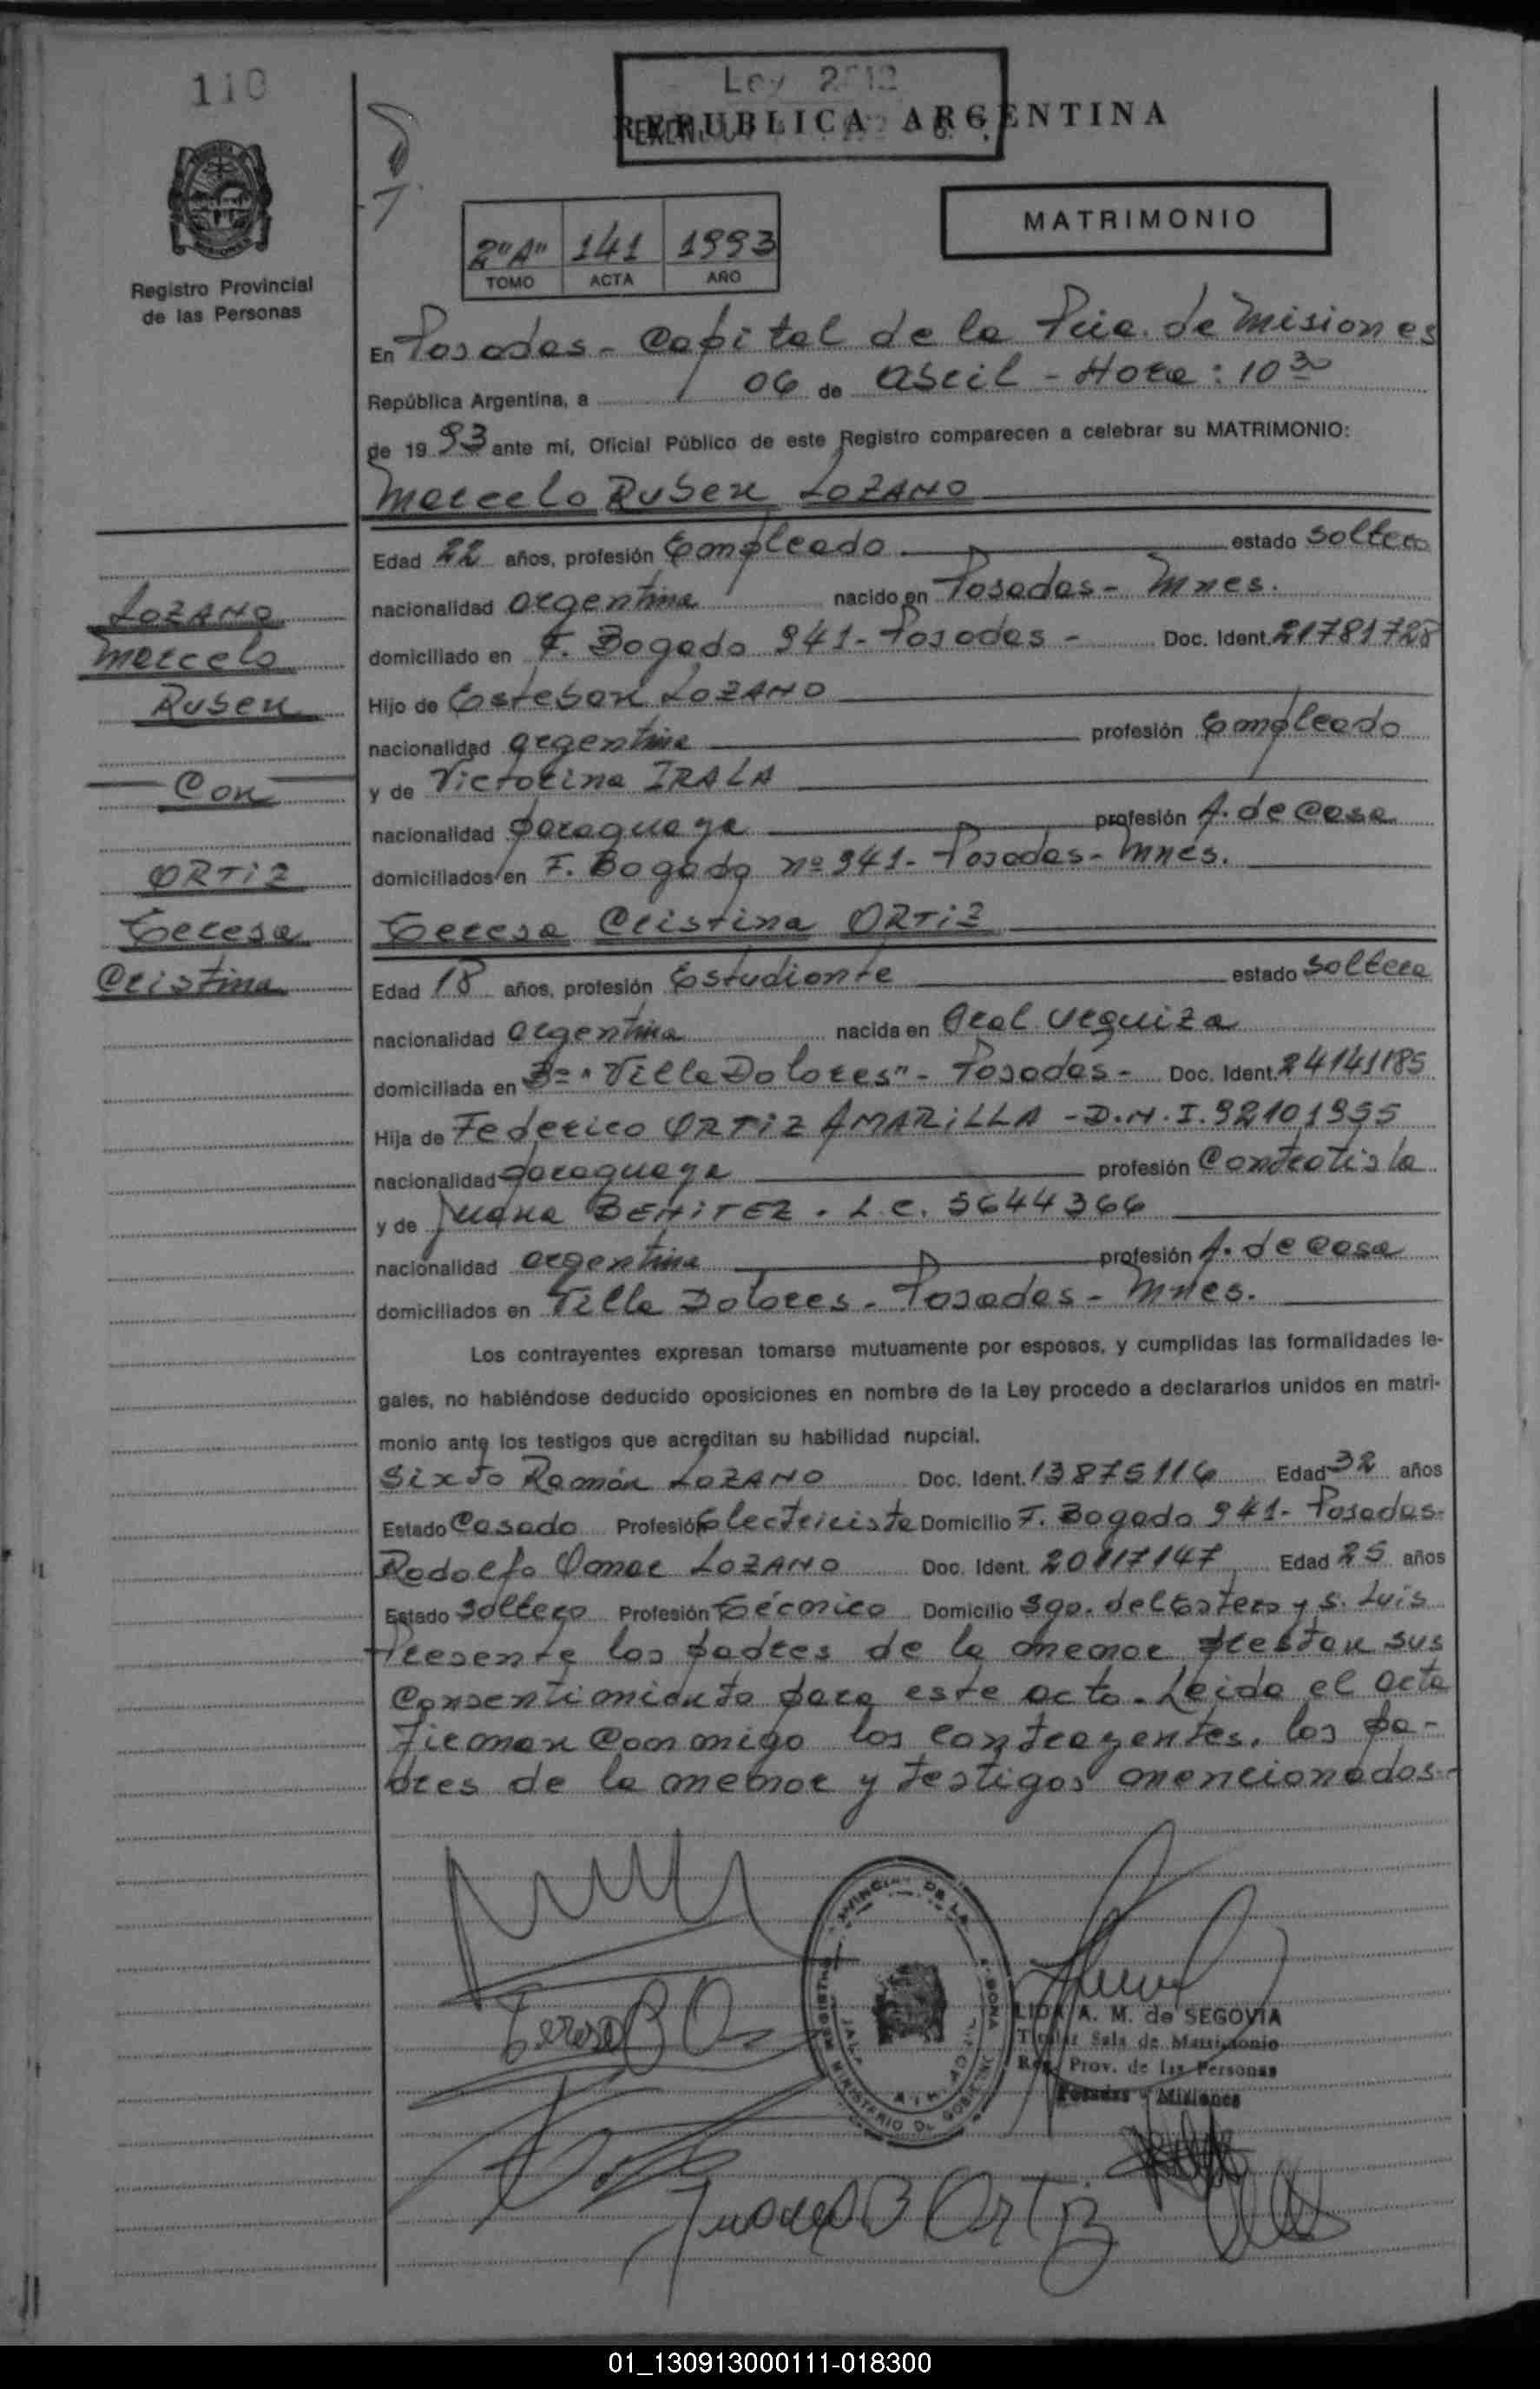 110
Ley 2512
REPUBLICA ARGENTINA
MATRIMONIO
2"A" 141 1993
TOMO ACTA AÑO
Registro Provincial
de las Personas
En Posadas - Capital de la Pcia. de Misiones
República Argentina, a 06 de abril - Hora: 10 30
de 1993 ante mí, Oficial Público de este Registro comparecen a celebrar su MATRIMONIO:
Marcelo Ruben LOZANO
Edad 22 años, profesión Empleado estado soltero
nacionalidad argentina nacido en Posadas - Mnes.
domiciliado en F. Bogado 941 - Posadas - Doc. Ident. 21781728
Hijo de Esteban LOZANO
nacionalidad argentina profesión Empleado
y de Victorina IRALA
nacionalidad paraguaya profesión A. de Casa
domiciliados en F. Bogado nº 941 - Posadas - Mnes.
Teresa Cristina ORTIZ
Edad 18 años, profesión Estudiante estado soltera
nacionalidad argentina nacida en Gral Urquiza
domiciliada en Bº "Villa Dolores" - Posadas - Doc. Ident. 24141185
Hija de Federico ORTIZ AMARILLA - D.N.I. 92101955
nacionalidad paraguaya profesión Contratista
y de Juana BENITEZ. L.C. 5644366
nacionalidad argentina profesión A. de Casa
domiciliados en Villa Dolores - Posadas - Mnes.
Los contrayentes expresan tomarse mutuamente por esposos, y cumplidas las formalidades le-
gales, no habiéndose deducido oposiciones en nombre de la Ley procedo a declararlos unidos en matri-
monio ante los testigos que acreditan su habilidad nupcial.
Sixto Ramón LOZANO Doc. Ident. 13875116 Edad 32 años
Estado Casado Profesión Electricista Domicilio F. Bogado 941 - Posadas-
Rodolfo Omar LOZANO Doc. Ident. 20117147 Edad 25 años
Estado soltero Profesión Técnico Domicilio Sgo. del Estero y S. Luis
Presente los padres de la menor prestan sus
Consentimiento para este acto. Leida el acta
firman conmigo los contrayentes, los pa-
dres de la menor y testigos mencionados.-
LOZANO
Marcelo
Ruben
Con
ORTIZ
Teresa
Cristina
Teresa
LIDIA A. M. de SEGOVIA
Titular Sala de Matrimonio
Reg. Prov. de las Personas
Posadas - Misiones
Juana B Ortiz
01_130913000111-018300